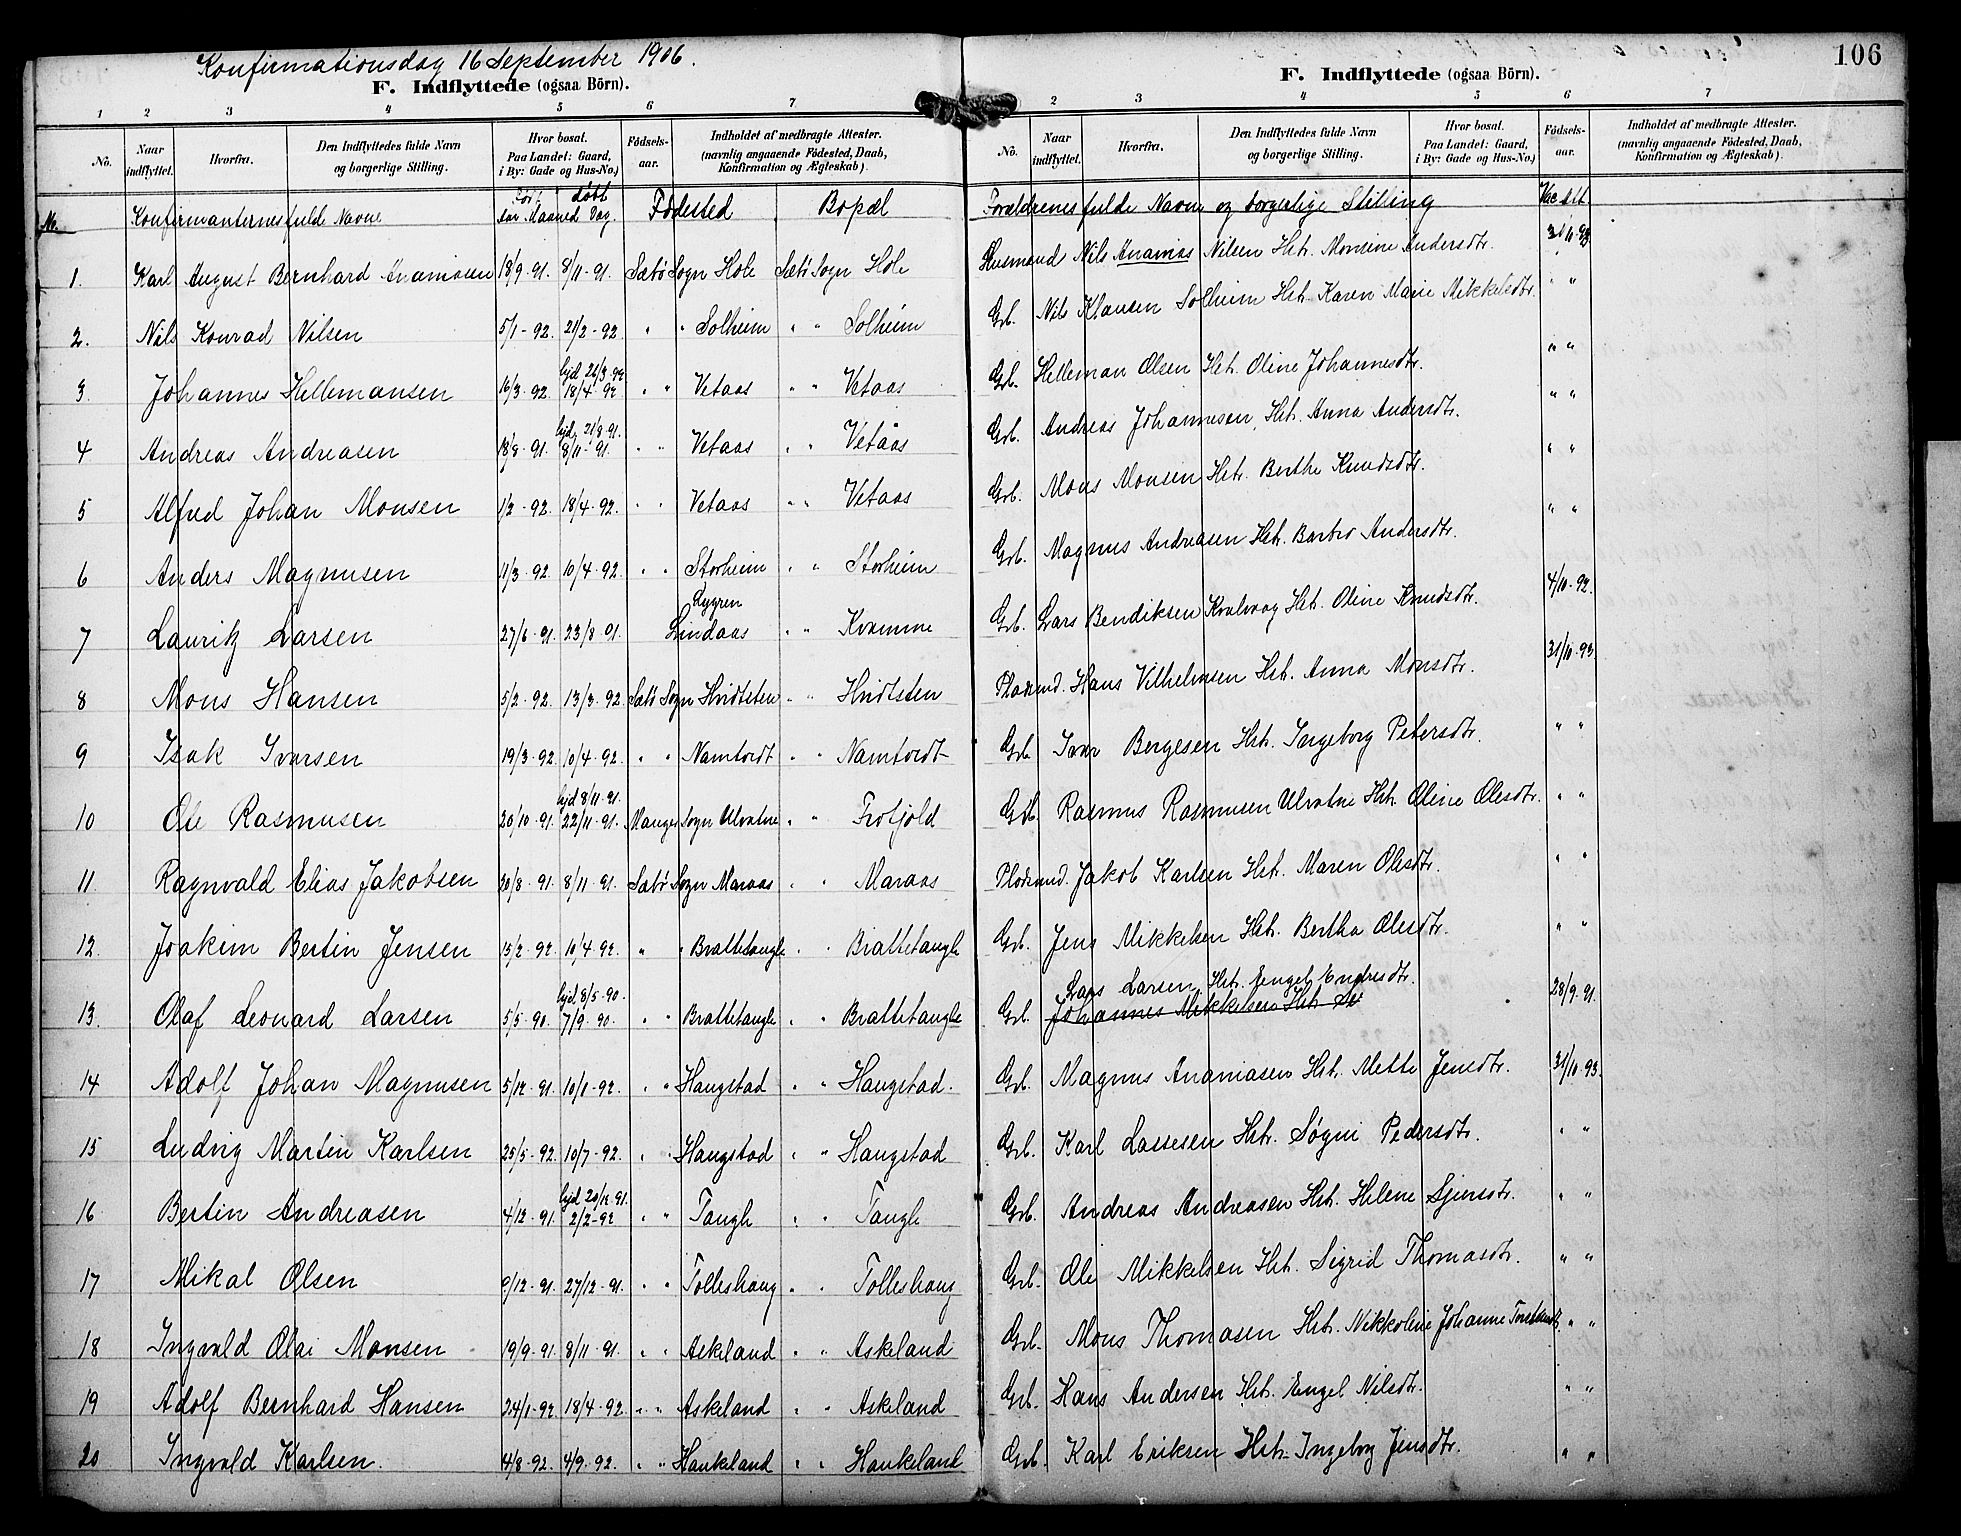 Konfirmationsdag 16 September 1906.
106
F. Indflyttede (ogsaa Börn).
F. Indflyttede (ogsaa Börn).
1 2 3 4 5 6 7
2 3 4 5 6 7
No. Naar indflyttet. Hvorfra. Den Indflyttedes fulde Navn og borgerlige Stilling. Hvor bosat. Paa Landet: Gaard, i By: Gade og Hus-No.) Födsels-aar. Indholdet af medbragte Attester. (navnlig angaaende Födested, Daab, Konfirmation og Ægteskab).
No. Naar indflyttet. Hvorfra. Den Indflyttedes fulde Navn og borgerlige Stilling. Hvor bosat. Paa Landet: Gaard, i By: Gade og Hus-No.) Födsels-aar. Indholdet af medbragte Attester. (navnlig angaaende Födested, Daab, Konfirmation og Ægteskab).
No. Konfirmanternes fulde Navne født døbt aar Maaned Dag. Fødested Bopæl Forældrenes fulde Navn og borgerlige Stilling Vac. dt
1. Karl August Bernhard Ananiasen 18/9-91. 8/11-91. Sæbø Sogn Hole Sæbø Sogn Hole Husmand Nils Ananias Nilsen Hst. Monsine Andersdtr. 31/10-93
2. Nils Konrad Nilsen 5/1-92. 21/2-92 " " Solheim " " Solheim Grb. Nils Klausen Solheim Hst. Karen Marie Mikkelsdtr. " "
3 Johannes Hellemansen 16/3-92 hjd. 26/3.92 18/4-92 " " Vetaas " " Vetaas Grb. Helleman Olsen Hst. Oline Johannesdtr. " "
4 Andreas Andreasen 18/8-91. hjd. 21/8.91. 8/11-91. " " Vetaas " " Vetaas Grb. Andreas Johannesen, Hst. Anna Andersdtr. " "
5 Alfred Johan Monsen 1/2-92. 18/4-92. " " Vetaas " " Vetaas Grb. Mons Monsen Hst. Berthe Knudsdtr. " "
6 Anders Magnusen 11/3-92 10/4-92. " " Storheim " " Storheim Grb. Magnus Andreasen Hst. Barbro Andersdtr. " "
7 Lauritz Larsen 27/6-91. 23/8-91. Lygren Lindaas " " Kvamme Grb. Lars Bendiksen Kvalvaag Hst. Oline Knudsdtr. 4/10-92.
8 Mons Hansen 5/2-92. 13/3-92 Sæbø Sogn Hvidtsten " " Hvidtsten Pladsmd. Hans Vilhelmsen Hst. Anna Monsdtr. 31/10-93
9 Isak Ivarsen 19/3-92. 10/4-92. " " Namtvedt " " Namtvedt Grb Ivar Bergesen Hst. Ingeborg Petersdtr. " "
10 Ole Rasmusen 20/10-91. hjd 8/11-91. 22/11-91. Manger Sogn Ulvatne " " Frotjold Grb. Rasmus Rasmusen Ulvatne Hst. Oline Olesdtr. " "
11 Ragnvald Elias Jakobsen 20/8-91. 8/11-91. Sæbø Sogn Maraas " " Maraas Pladsmd. Jakob Karlsen Hst. Maren Olesdtr. " "
12. Joakim Bertin Jensen 15/2-92. 10/4-92. " " Brattetangle " " Brattetangle Grb. Jens Mikkelsen Hst. Bertha Olesdtr. " "
13. Olaf Leonard Larsen 5/5-90. hjd. 8/5-90. 7/9-90. " " Brattetangle " " Brattetangle Grb. Lars Larsen Hst. Engel Endresdtr. 28/9-91.
Johannes Mikkelsen Hst.
14 Adolf Johan Magnusen 5/12-91. 10/1-92. " " Haugstad " " Haugstad. Grb. Magnus Ananiasen Hst. Mette Jensdtr. 31/10-93.
15 Ludvig Martin Karlsen 25/5-92. 10/7-92. " " Haugstad " " Haugstad Grb. Karl Lassesen Hst. Søgni Pedersdtr. " "
16 Bertin Andreasen 4/12-91. hjd 20/12.91. 2/2-92 " " Tangle " " Tangle Grb. Andreas Andreasen Hst. Helene Sjursdtr. " "
17 Mikal Olsen 9/12-91. 27/12-91. " " Tolleshaug " " Tolleshaug Grb. Ole Mikkelsen Hst. Sigrid Thomasdtr. " "
18 Ingvald Olai Monsen 19/9-91. 8/11-91. " " Askeland " " Askeland Grb. Mons Thomasen Hst. Nikkoline Johanne " "
19 Adolf Bernhard Hansen 24/1-92. 18/4-92. " " Askeland " " Askeland Grb. Hans Andersen Hst. Engel Nilsdtr. " "
20 Ingvald Karlsen. 4/8-92. 4/9-92. " " Haukeland " " Haukeland Grb. Karl Eriksen Hst. Ingeborg Jensdtr. " "